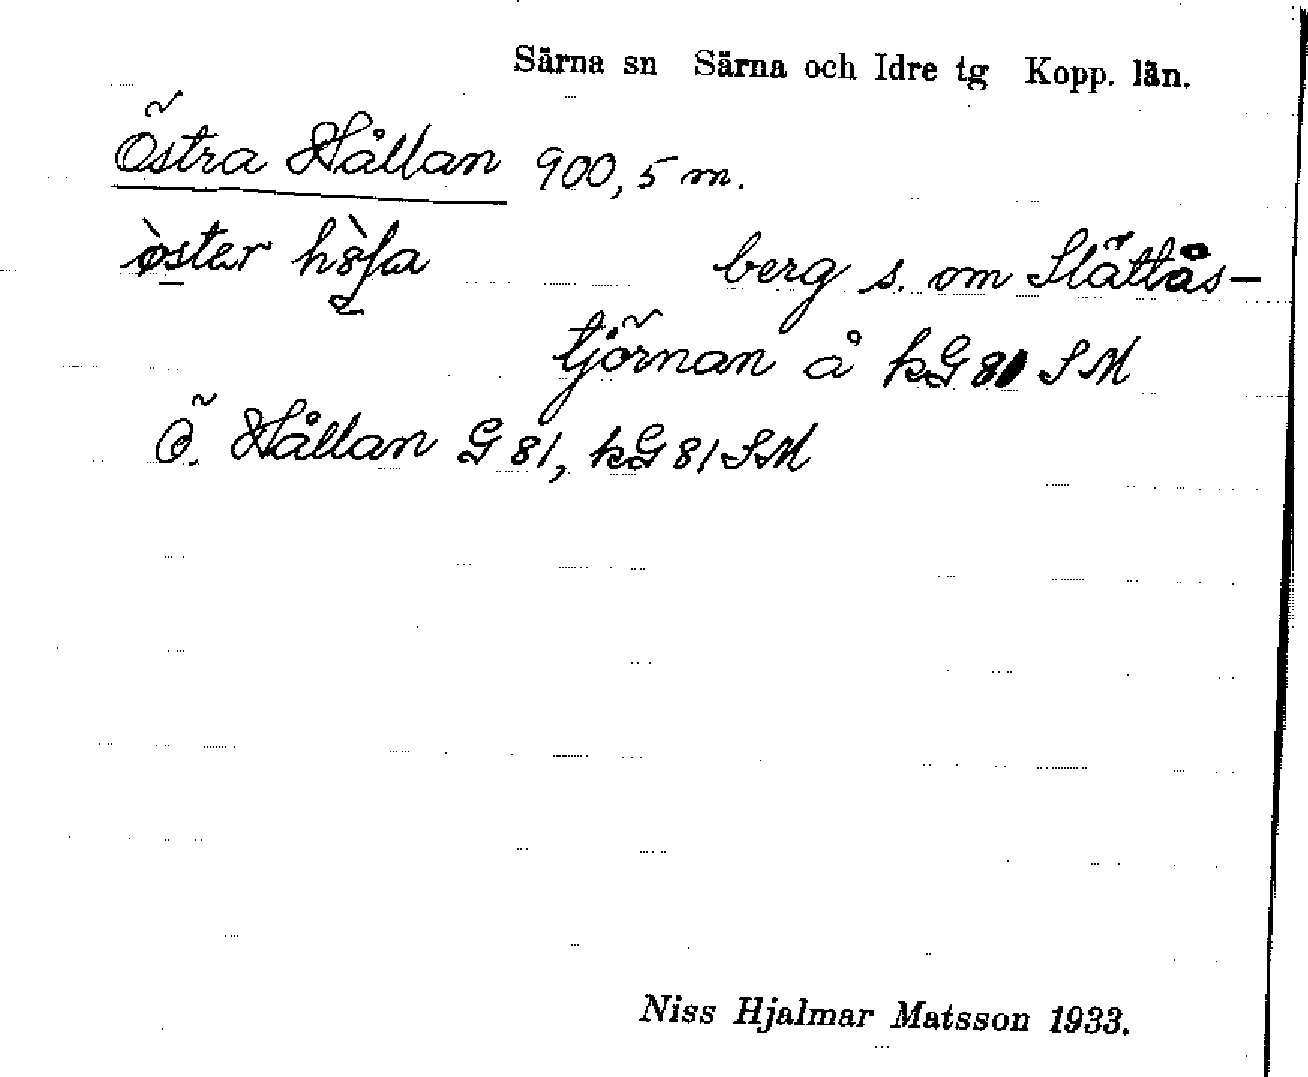 Särna sn Särna och Idre tg Kopp. län.
Östra Hållan 900,5 m.
øster berg s. om Slättås-
tjörnan å kG 81 SM
Ö. Hållan G 81, kG 81 SM
Niss Hjalmar Matsson 1933.